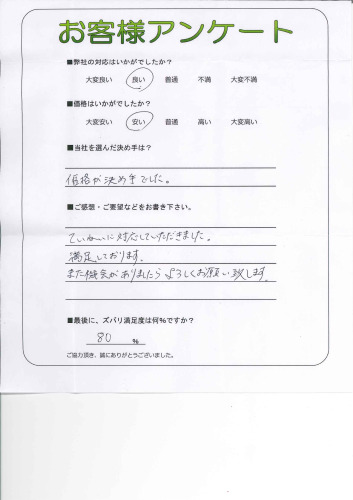 お客様アンケート
■弊社の対応はいかがでしたか?
大変良い 良い 普通 不満 大変不満
■価格はいかがでしたか?
大変安い 安い 普通 高い 大変高い
■当社を選んだ決め手は?
価格が決め手でした。
■ご感想・ご要望などをお書き下さい。
ていねいに対応していただきました。
満足しております。
また機会がありましたらよろしくお願い致します。
■最後に、ズバリ満足度は何%ですか?
80 %
ご協力頂き、誠にありがとうございました。